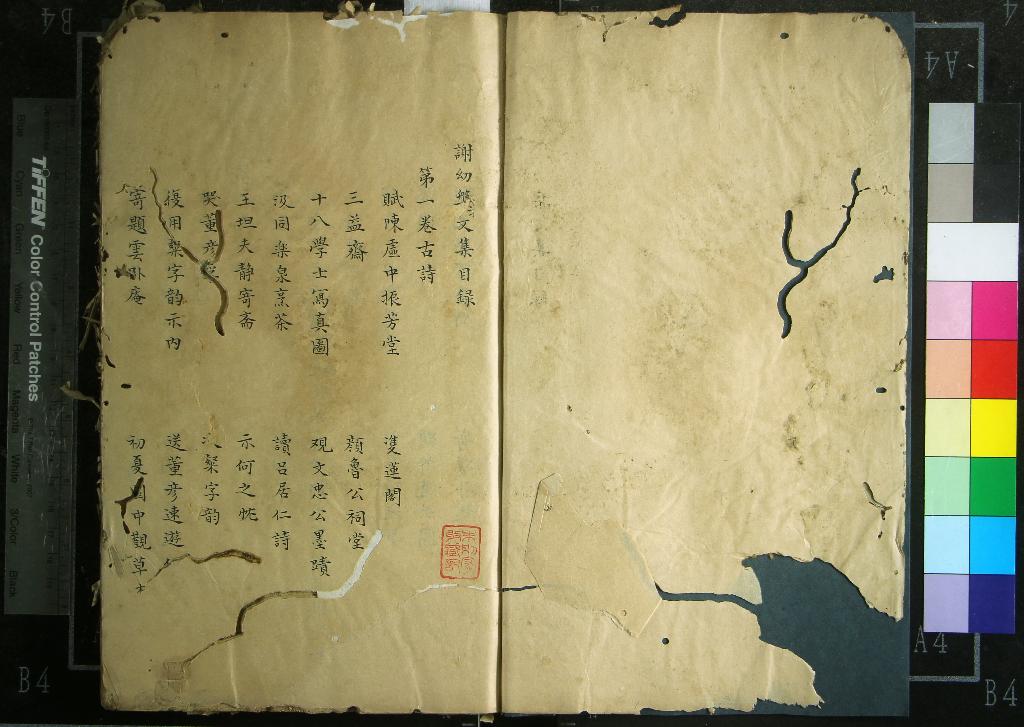 謝幼槃文集目録
第一卷古詩
賦陳虛中振芳堂
隻蓮閣
三益齋
顏魯公祠堂
十八學士寫真圖
观文忠公墨蹟
汲同楽泉烹茶
讀吕居仁詩
王坦夫静寄斎
示何之忱
哭董彦
粲字韵
復用粲字韵示内
送董彦速遊
寄題雲卧庵
初夏中觀草
TIFFEN Color Control Patches
Blue
Cyan
Green
Yellow
Red
Magenta
White
3/Color
Black
B4
A4
B4
A4
B4